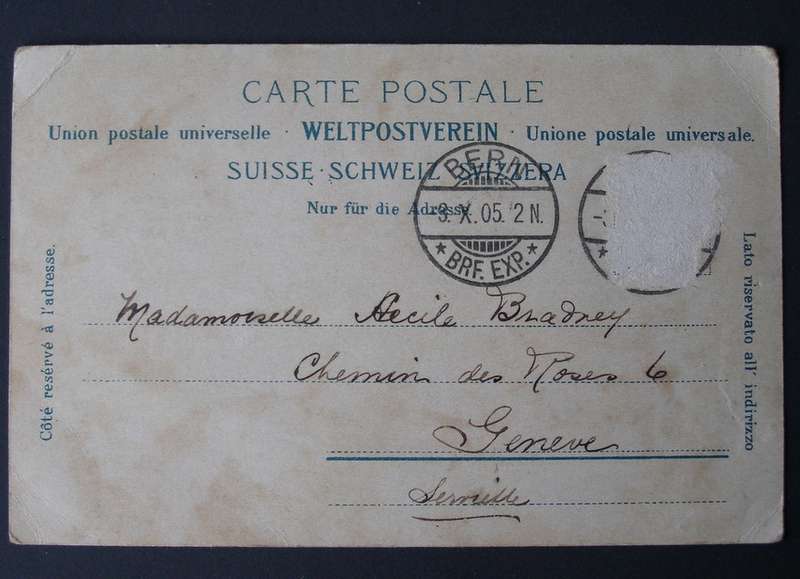 CARTE POSTALE
Union postale universelle · WELTPOSTVEREIN · Unione postale universale.
SUISSE · SCHWEIZ · SVIZZERA
Nur für die Adresse.
BERN
3. X. 05. 2 N.
★ BRF. EXP. ★
Côté resérvé à l'adresse.
Lato riservato all' indirizzo
Madamoiselle Cecile Bradney
Chemin des Roses 6
Geneve
Servette